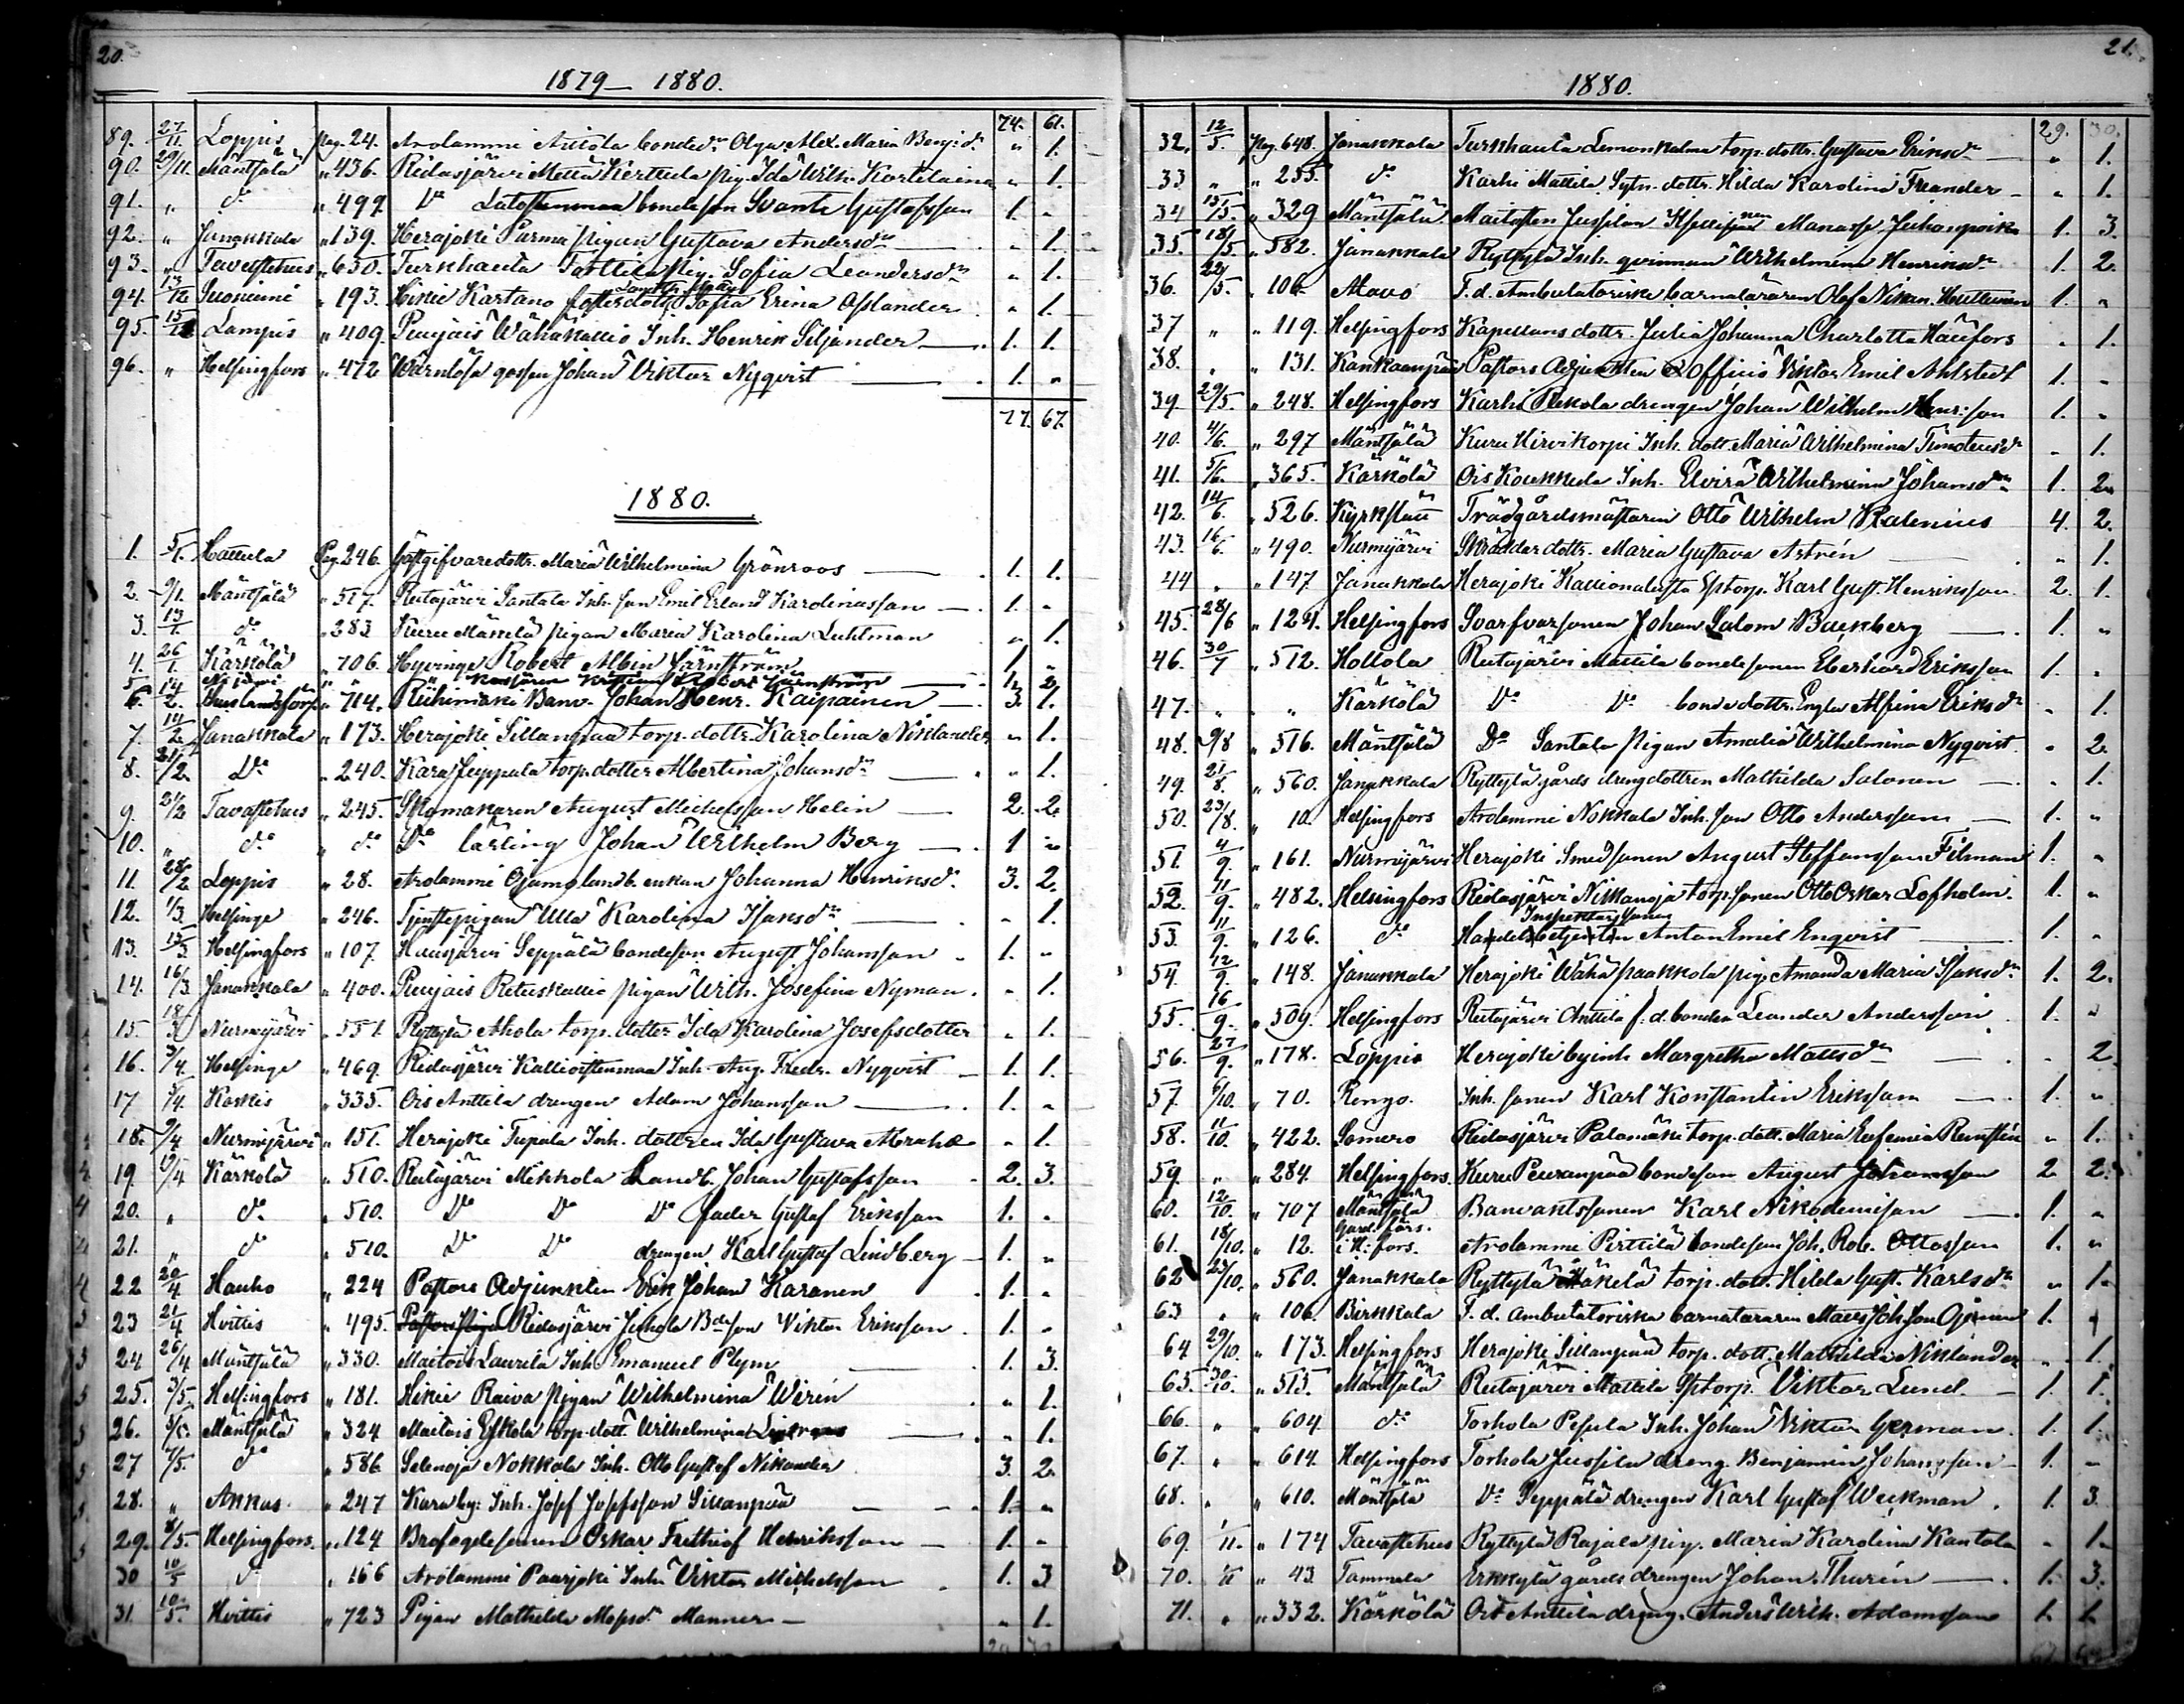 20.
1879 — 1880.
74. 61.
89. 27/11. Loppis Pag. 24. Arolammi Anttila bonded:r Olga Alex. Maria Benj:d:r „ 1.
90. 29/11. Mäntsälä „ 436. Ridasjärvi Mettä Kerttula pig. Ida Wilh. Kortelaena „ 1.
91. „ d:o „ 499. D:o bondeson Svante Gustafsson 1. „
92. „ Janakkala „ 139. Herajoki Parma pigan Gustava Andersd:r — „ 1.
93. „ Tavastehus „ 630. Turkhauta Tarttila pig. Sofia Leandersd:r „ 1.
94. 13/12. „ 193. Hikie Kartano fosterdottr Sofia Erina Asslander „ 1.
95. 15/12 Lampis „ 409. Puujais Wähäkallio Inh. Henrik Siljander — 1. 1.
96. „ Helsingfors „ 472 Wärnlösa gossen Johan Viktor Nyqvist — 1. „
77. 67.
1880.
1. 5/1. Hattula Pag. 246. Gästgifvaredottr. Maria Wilhelmina Grönroos — 1. 1.
2. 9/1. Mäntsälä „ 517. Rutajärvi Santala Inh. son Emil Erland Karolinasson — 1. „
3. 13/1. d:o „ 283 Kuru Mäkelä pigan Maria Karolina Luhtman „ 1.
4. 26/1. Kärkölä „ 706. Hyvinge Robert Albin Järnström 1. „
5. „ „ Kristian Robert Järnström — 1. 2.
6. 14/2. „ 714. Riihimäki Banv. Johan Henr. Kaipainen — 3. 1.
7. 14/2. Janakkala „ 173. Herajoki Sillanpää torp. dottr. Karolina Niklander „ 1.
8. 21/2. D:o „ 240. Kara Seppala torp. dotter Albertina Johansd:r — „ 1.
9. 24/2 Tavastehus „ 245. Skomakaren August Michelsson Helin — 2. 2.
10. „ d:o „ d:o D:o lärling Johan Wilhelm Berg — 1 „
11. 28/2 Loppis „ 28. Arolammi Ojamo landb. enkan Johanna Henriksd:r 3. 2.
12. 1/3. Helsinge „ 246. Tjenstepigan Ulla Karolina Isaksd:r — „ 1.
13. 15/3. Helsingfors „ 107. Hausjärvi Seppälä bondeson August Johansson 1. „
14. 16/3. Janakkala „ 400. Puujais Retuskallio pigan Wilh. Josefina Nyman. „ 1.
15. 18/3. Nurmijärvi „ 551 Ryttylä Ahola torp. dotter Ida Karolina Josefsdotter „ 1.
16. 3/4. Helsinge „ 469. Ridasjärvi Kallioistenmaa Inh. Aug. Fredr. Nyqvist — 1. 1.
17 5/4. Koskis „ 335. Ois Anttila drengen Adam Johansson — 1. „
18. 9/4 Nurmijärvi „ 151. Herajoki Tupala Inh. dottren Ida Gustava Abraha „ 1.
19 19/4 Kärkölä „ 510. Rutajärvi Mikkola Landb. Johan Gustafsson 2. 3.
20. „ d:o „ 510. D:o D:o D:o fader Gustaf Eriksson 1. „
21. „ d:o „ 510. D:o D:o drengen Karl Gustaf Lindberg — 1. „
22 20/4 Hauho „ 224 Pastors Adjunkten Erik Johan Karanen 1. „
23 21/4 Hvittis „ 495. Ridasjärvi Jukola B:deson Viktor Eriksson 1. „
24 26/4 Mäntsälä „ 330. Maitois Laurila Inh. Emanuel Plym — 1. 3.
25. 3/5. Helsingfors „ 181. Hikie Raiva pigan Wilhelmina Wirén „ 1.
26. 5/5. Mäntsälä „ 324 Maitois Eskola torp. dott. Wilhelmina — „ 1.
27 7/5. d:o „ 586 Selenoja Nokkala Inh. Otto Gustaf Nikander 3. 2.
28. „ Akkas „ 247 Kara by: Inh. Josef Josefsson Sillanpää — 1. „
29. 8/5. Helsingfors. „ 124 Brofogdesonen Oskar Frithiof Henriksson — 1. „
30 10/5 d:o „ 166 Arolammi Paarjoki Inh. Viktor Michelsson 1. 3
31. 10/5. Hvittis „ 723 Pigan Mathilda Mansd:r Manner — „ 1.
21.
1880.
29. 30.
32. 12/5. Pag. 648. Janakkala Turkhauta Lemonkalma torp. dottr. Gustava Eriksd:r — „ 1.
33 „ „ 255. d:o Karhi Mattila Sytn. dottr. Hilda Karolina Freander — „ 1.
34 15/5. „ 329 Mäntsälä. Maitoisten Jussilan Manasse Juhanpoika 1. 3.
35. 18/5. „ 582. Janakkala Ryttylä Inh. qvinnan Wilhelmina Henriksd:r 1. 2.
36. 22/5. „ 106. F. d. Ambulatoriska barnaläraren Olof Nikan. Huttunen 1. „
37 „ „ 119. Helsingfors Kapellans dottr. Julia Johanna Charlotta Häufors „ 1.
38. „ „ 131. Kankaanpää Pastors Adjunkten ex Officio Viktor Emil Ahlstedt 1. „
39. 29/5. „ 248. Helsingfors Karhi Pekola drengen Johan Wilhelm Henr:son 1. „
40. 4/6. „ 297 Mäntsälä Kuru Hirvikorpi Inh. dott. Maria Wilhelmina Timoteusd:r „ 1.
41. 5/6. „ 365. Kärkölä Ois Koukkula Inh. Elvira Wilhelmina Johansd:r 1. 2.
42. 14/6. „ 526. Kyrkslätt Trädgårdsmästaren Otto Wilhelm Kalenius 4. 2.
43. 16/6. „ 490. Nurmijärvi Skräddar dottr. Maria Gustava Astrén — „ 1.
44 „ „ 147. Janakkala Herajoki Kallionalusta Sptorp. Karl Gust. Henriksson. 2. 1.
45. 28/6 „ 124. Helsingfors Svarfvarsonen Johan Salom Backberg — 1. „
46. 30/7 „ 512. Hollola Rutajärvi Mattila bondesonen Eberhard Eriksson 1. „
47. „ „ Kärkölä D:o D:o bondedottr. Engla Alfina Eriksd:r „ 1.
48. 9/8 „ 516. Mäntsälä D:o Santala pigan Amalia Wilhelmina Nyqvist. „ 2.
49. 21/8. „ 560. Janakkala Ryttylä gårds drengdottren Mathilda Salonen — „ 1.
50. 23/8. „ 10. Helsingfors Arolammi Nokkala Inh. son Otto Andersson — 1. „
51. 4/9. „ 161. Nurmijärvi Herajoki Smedsonen August Steffansson Filman 1. „
52. 11/9. „ 482. Helsingfors Ridasjärvi Nikkanoja torp. sonen Otto Oskar Lofholm. 1. „
Inspektorssonen
53. 11/9. „ 126. d:o Handelsbetjenten Anton Emil Enqvist — 1. „
54. 12/9. „ 148. Janakkala Herajoki Wähä paakkola pig. Amanda Maria Isaksd:r 1. 2.
55. 16/9. „ 509. Helsingfors Rutajärvi Anttila f. d. bonden Leander Andersson 1. „
56. 27/9. „ 178. Loppis Herajoki byinh. Margretha Mattsd:r — „ 2
57. 6/10. „ 70. Rengo. Inh. sonen Karl Konstantin Eriksson — 1. „
58. 11/10. „ 422. Somero Ridasjärvi Palomäki torp. dott. Maria Eufemia Renstén „ 1.
59. „ „ 284. Helsingfors. Kuru Peuranpää bondeson August Johansson 2 2.
60. 12/10. „ 707 Mäntsälä Banvaktssonen Karl Nikodemisson — 1. „
Gard. förs.
61. 18/10. „ 12. i H:fors. Arolammi Pirttilä bondeson Joh. Rob. Ottosson 1. „
62 23/10. „ 560. Janakkala Ryttylä Mäkelä torp. dott. Hilda Gust. Karlsd:r „ 1.
63 „ „ 106. Birkkala F. d. ambulatoriska barnaläraren Matts Joh. son 1. „
64 29/10. „ 173. Helsingfors Herajoki Sillanpää torp. dott. Mathilda Niklander „ 1.
65. 30/10. „ 515. Mäntsälä Rutajärvi Mattila Sptorp. Viktor Lund. — 1. 1.
66. „ „ 604. d:o Torhola Pesula Inh. Johan Viktor German. 1. 1.
67. „ „ 614. Helsingfors Torhola Jussila dreng. Benjamin Johansson — 1. „
68. „ „ 610. Mäntsälä D:o Seppälä drengen Karl Gustaf Weckman. 1. 3.
69. 1/11. „ 174 Tavastehus Ryttylä Rajala pig. Maria Karolina Kantola „ 1.
70. „ 43. Tammela Erkkylä gårds drengen Johan Thurén — 1. 3.
71. „ „ 332. Kärkölä Ois Anttila dreng. Anders Wilh. Adamsson 1. 1.